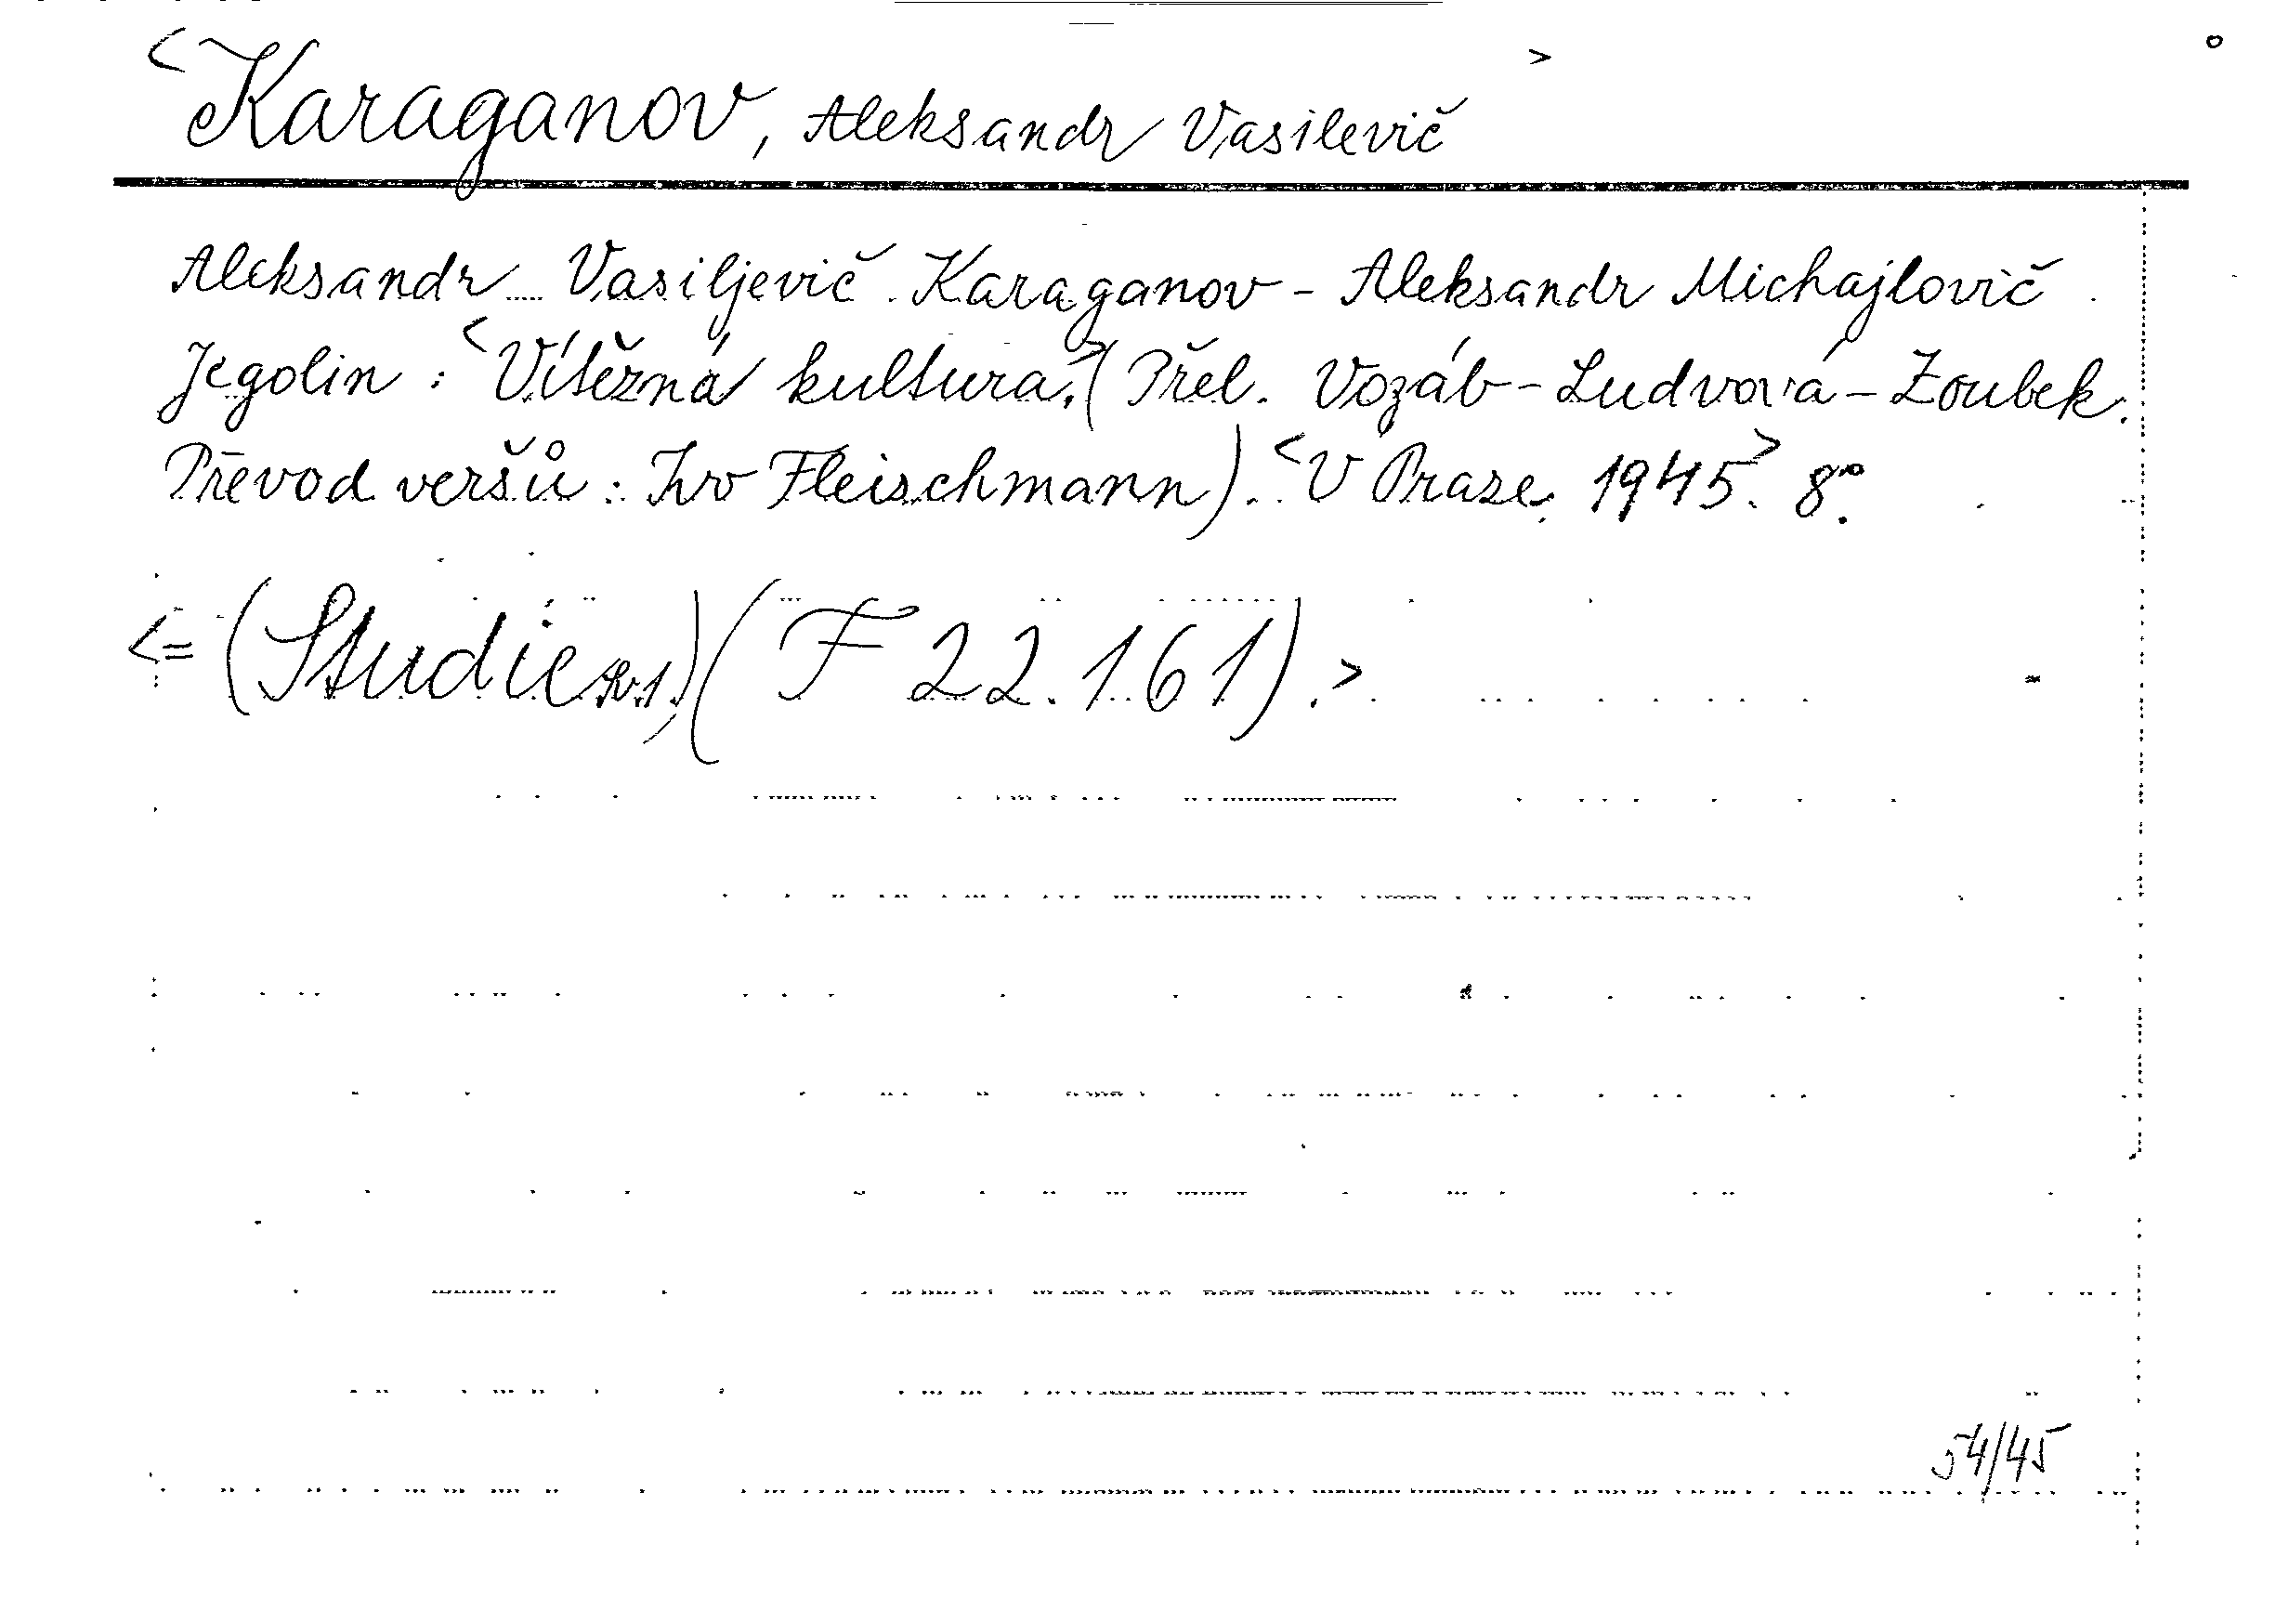 <Karaganov, Aleksandr Vasilevič>
Aleksandr Vasiljevič Karaganov - Aleksandr Michajlovič
Jegolin : <Vítězná kultura.>(Přel. Vozáb - Ludvová - Zoubek.
Převod veršů : Ivo Fleischmann). <V Praze, 1945>. 8°.
<= (Studie sv. 1.) (F 22.161).>
54/45